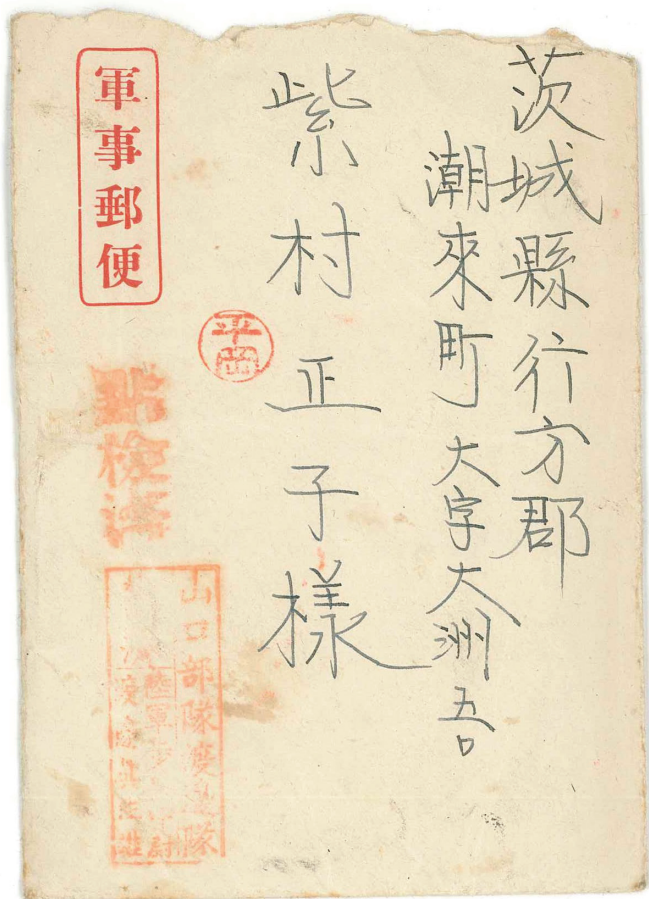 茨城縣行方郡
潮來町大字大洲吾
紫村正子樣
軍事郵便
平岡
點檢濟
山口部隊渡邊隊
陸軍